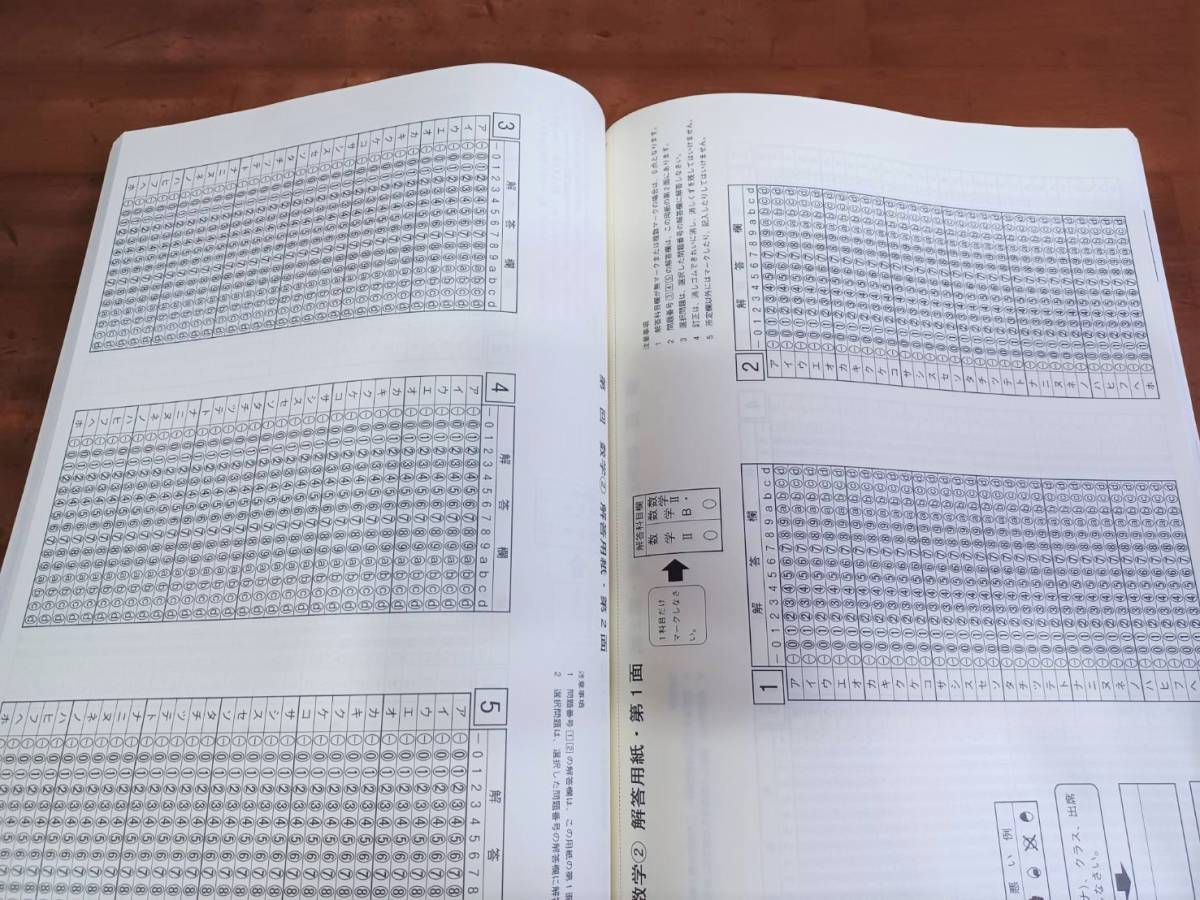 数学② 解答用紙・第1面
注意事項
1 解答科目欄が無マークまたは複数マークの場合は、0点となります。
2 問題番号③④⑤の解答欄は、この用紙の第2面にあります。
3 選択問題は、選択した問題番号の解答欄に解答しなさい。
4 訂正は、消しゴムできれいに消し、消しくずを残してはいけません。
5 所定欄以外にはマークしたり、記入したりしてはいけません。
1科目だけ
マークしなさ
い。
解答科目欄
数学Ⅱ
数学Ⅱ・数学B
1
解答欄
- 0 1 2 3 4 5 6 7 8 9 a b c d
ア
イ
ウ
エ
オ
カ
キ
ク
ケ
コ
サ
シ
ス
セ
ソ
タ
チ
ツ
テ
ト
ナ
ニ
ヌ
ネ
ノ
ハ
ヒ
フ
ヘ
2
解答欄
- 0 1 2 3 4 5 6 7 8 9 a b c d
ア
イ
ウ
エ
オ
カ
キ
ク
ケ
コ
サ
シ
ス
セ
ソ
タ
チ
ツ
テ
ト
ナ
ニ
ヌ
ネ
ノ
ハ
ヒ
フ
ヘ
ホ
悪い例
ナ)、クラス、出席
なさい。
第 回 数学② 解答用紙・第2面
注意事項
1 問題番号①②の解答欄は、この用紙の第1面
2 選択問題は、選択した問題番号の解答欄に解
3
解答欄
- 0 1 2 3 4 5 6 7 8 9 a b c d
ア
イ
ウ
エ
オ
カ
キ
ク
ケ
コ
サ
シ
ス
セ
ソ
タ
チ
ツ
テ
ト
ナ
ニ
ヌ
ネ
ノ
ハ
ヒ
フ
ヘ
ホ
4
解答欄
- 0 1 2 3 4 5 6 7 8 9 a b c d
ア
イ
ウ
エ
オ
カ
キ
ク
ケ
コ
サ
シ
ス
セ
ソ
タ
チ
ツ
テ
ト
ナ
ニ
ヌ
ネ
ノ
ハ
ヒ
フ
ヘ
ホ
5
解答
- 0 1 2 3 4 5 6 7 8
ア
イ
ウ
エ
オ
カ
キ
ク
ケ
コ
サ
シ
ス
セ
ソ
タ
チ
ツ
テ
ト
ナ
ニ
ヌ
ネ
ノ
ハ
ヒ
フ
ヘ
ホ